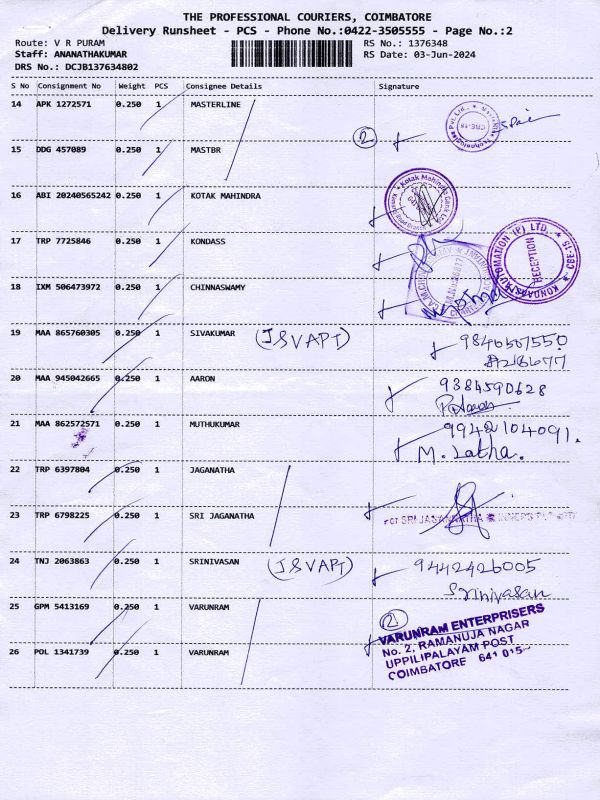 THE PROFESSIONAL COURIERS, COIMBATORE
Delivery Runsheet - PCS - Phone No.:0422-3505555 - Page No.:2
Route: V R PURAM RS No.: 1376348
Staff: ANANATHAKUMAR RS Date: 03-Jun-2024
DRS No.: DCJB137634802
S No Consignment No Weight PCS Consignee Details Signature
14 APK 1272571 0.250 1 MASTERLINE
2
15 DDG 457089 0.250 1 MASTBR
16 ABI 20240565242 0.250 1 KOTAK MAHINDRA
Kotak Mahindra
17 TRP 7725846 0.250 1 KONDASS
RECEPTION
18 IXM 506473972 0.250 1 CHINNASWAMY
19 MAA 865760305 0.250 1 SIVAKUMAR (JSVAPT)
20 MAA 945042665 0.250 1 AARON 9384590628
21 MAA 862572571 0.250 1 MUTHUKUMAR 9942104091.
M. Latha.
22 TRP 6397804 0.250 1 JAGANATHA
23 TRP 6798225 0.250 1 SRI JAGANATHA
24 TNJ 2063863 0.250 1 SRINIVASAN (JSVAPT) 9442426005
Srinivasan
25 GPM 5413169 0.250 1 VARUNRAM 2
VARUNRAM ENTERPRISERS
No. 2, RAMANUJA NAGAR
UPPILIPALAYAM POST
26 POL 1341739 0.250 1 VARUNRAM COIMBATORE 641 015